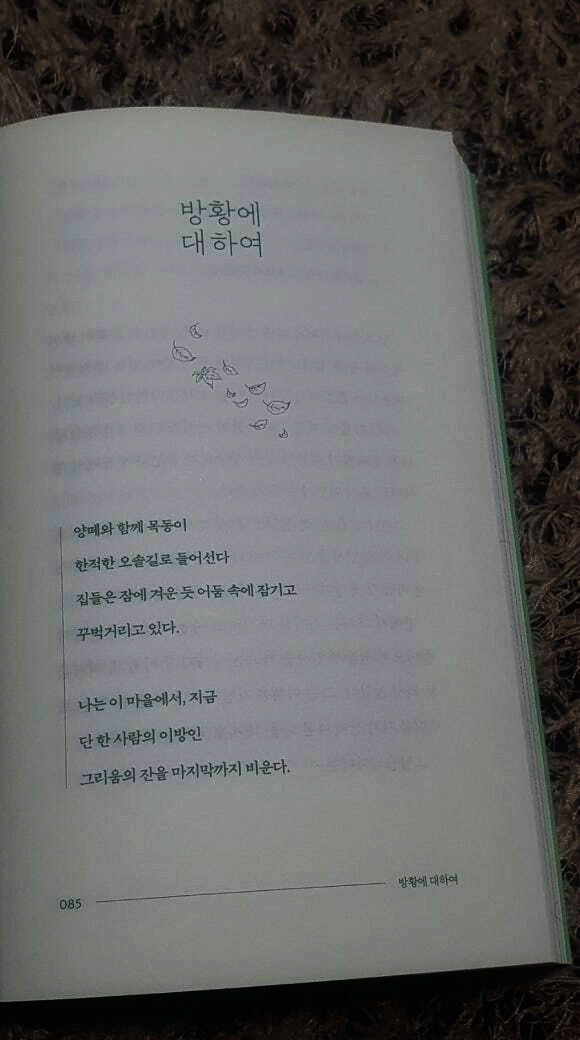 방황에
대하여
양떼와 함께 목동이
한적한 오솔길로 들어선다
집들은 잠에 겨운 듯 어둠 속에 잠기고
꾸벅거리고 있다.
나는 이 마을에서, 지금
단 한 사람의 이방인
그리움의 잔을 마지막까지 비운다.
085
방황에 대하여